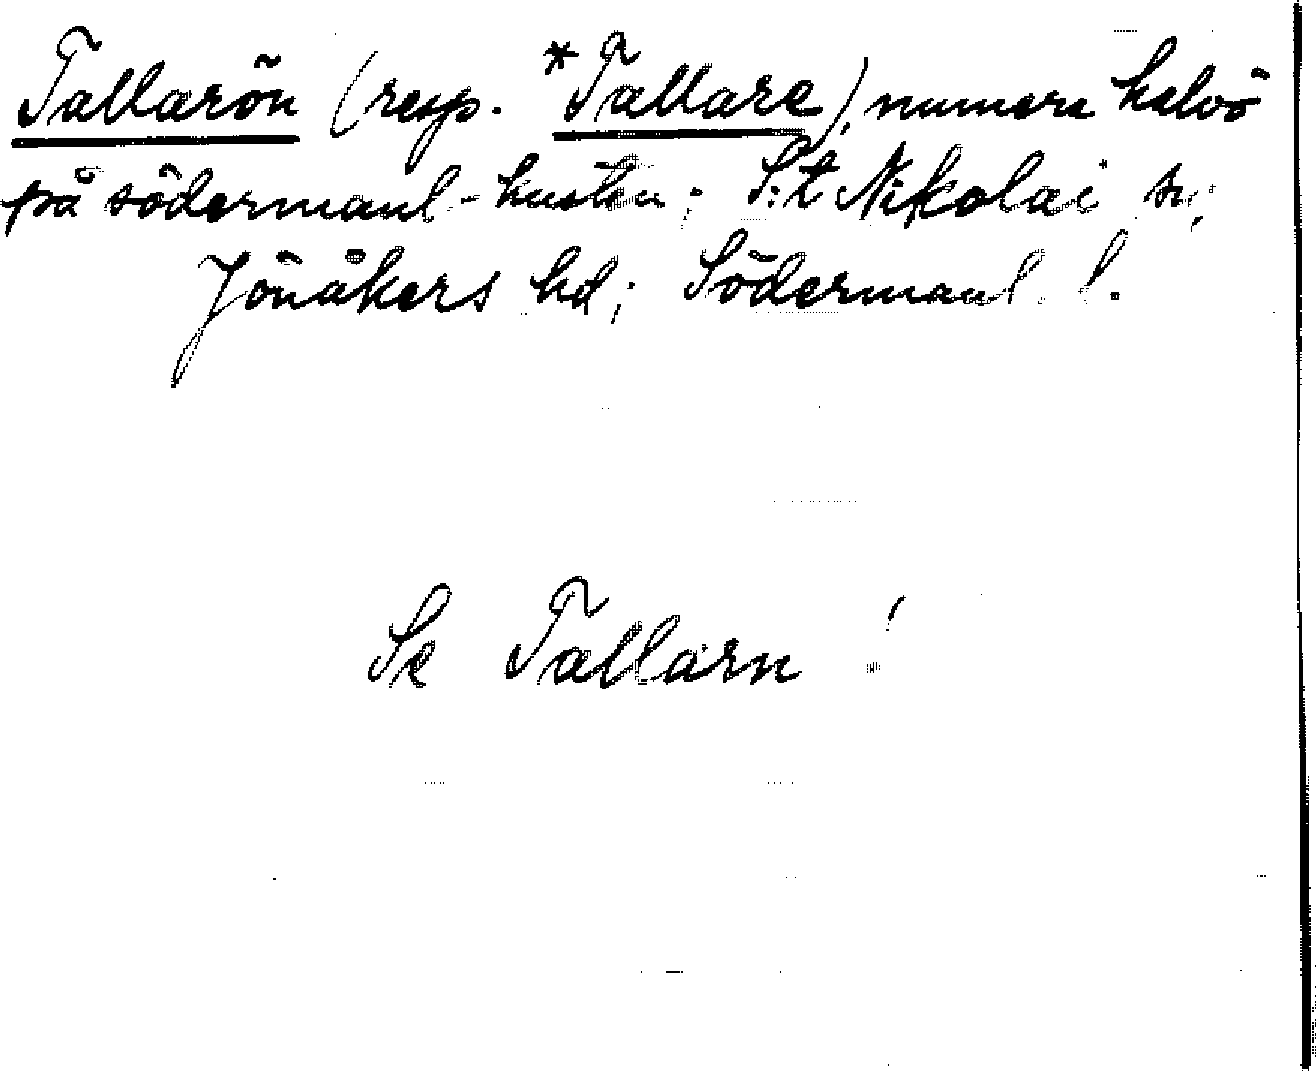 Tallarön (resp. *Tallare), numera halvö
på södermanl-kusten; S:t Nikolai sn;
Jönåkers hd; Södermanl. l.
Se Tallarn!